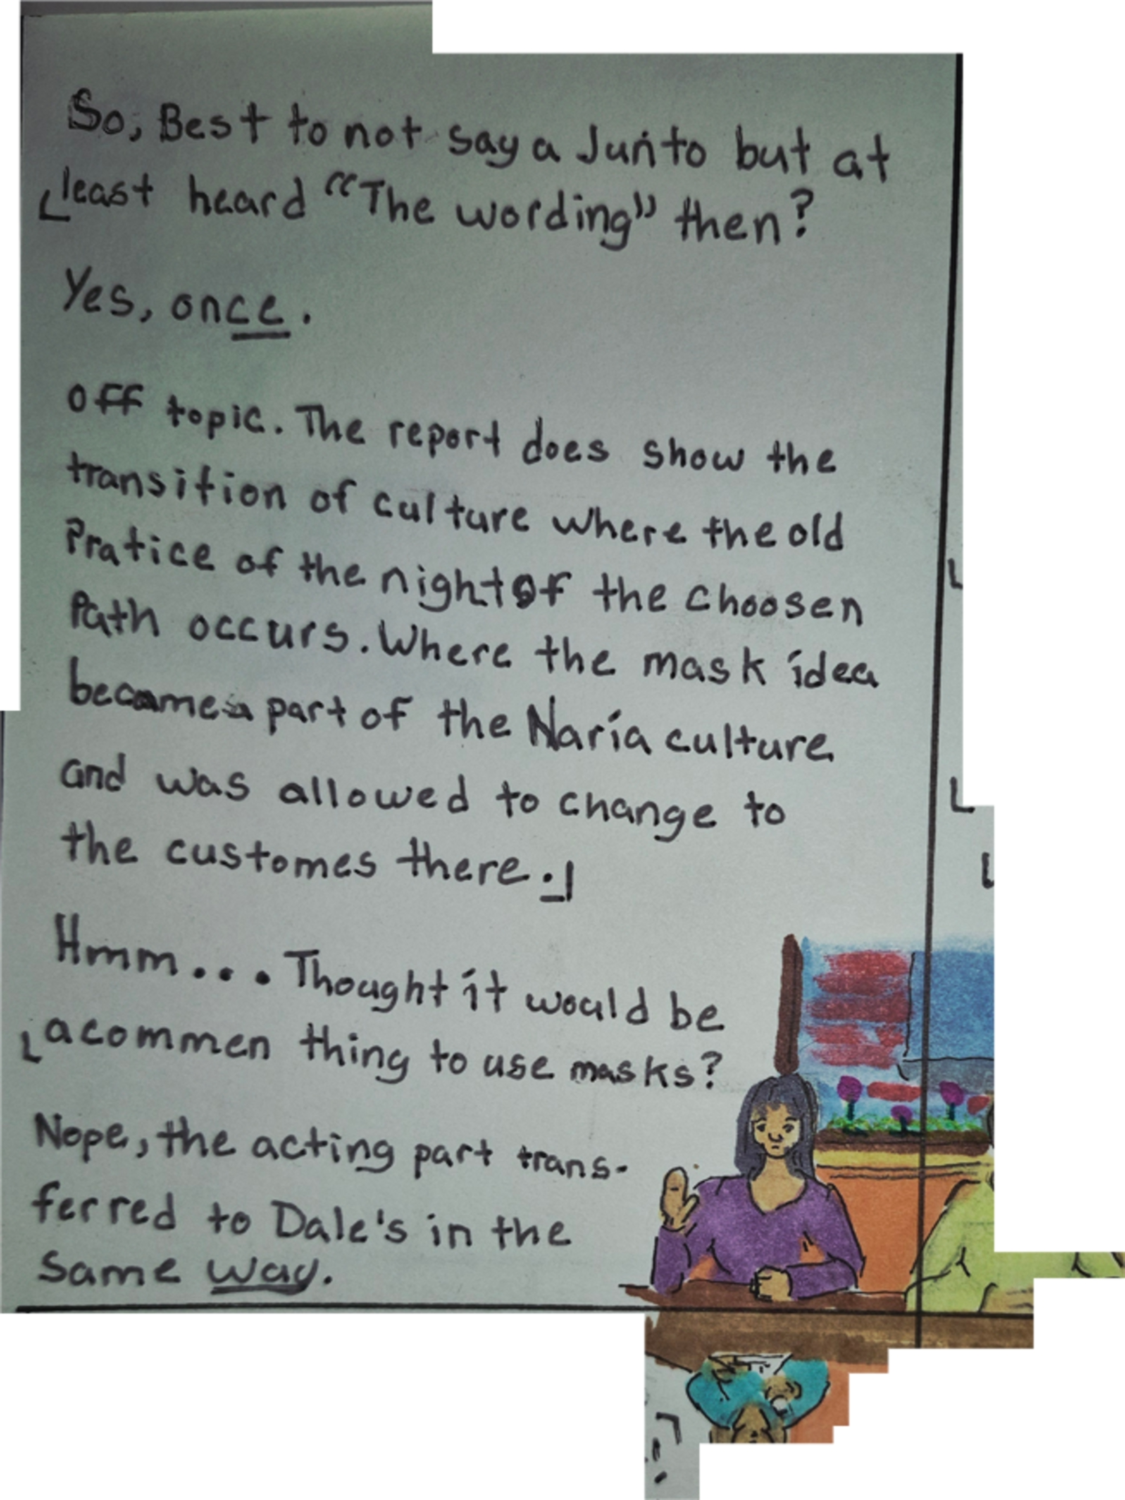 So, Best to not say a Junto but at
least heard "The wording" then?
Yes, once.
Off topic. The report does show the
transition of culture where the old
Pratice of the night of the choosen
Path occurs. Where the mask idea
became a part of the Naria culture
and was allowed to change to
the customes there.
Hmm... Thought it would be
acommen thing to use masks?
Nope, the acting part trans-
ferred to Dale's in the
same way.